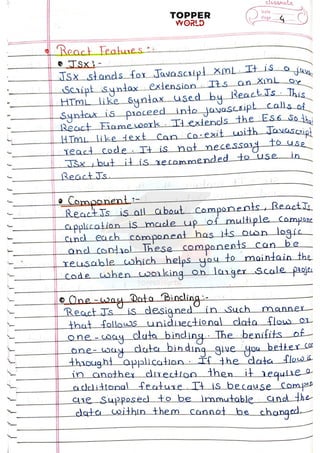 classmate
Date
Page 4
TOPPER
WORLD
• React Features:-
• JSX:-
JSX stands for Javascript XML. It is a java
Script syntax extension. Its an XML or
HTML like Syntax used by ReactJs. This
Syntax is proceed into javascript calls of
React Framework. It extends the ES6 so that
HTML like text can co-exist with Javascript
react code. It is not necessary to use
JSX, but it is recommended to use in
ReactJs.
• Component:-
ReactJs is all about components, ReactJs
application is made up of multiple compone
and each component has its own logic
and control These components can be
reusable which helps you to maintain the
code when working on larger scale projec
• One-way Data Binding:-
React Js is designed in such manner
that follows unidirectional data flow or
one-way data binding. The benifits of
one-way data binding give you better co
throught application. If the data flow is
in another direction then it require a
additional feature. It is because compon
are supposed to be immutable and the
data within them cannot be changed.